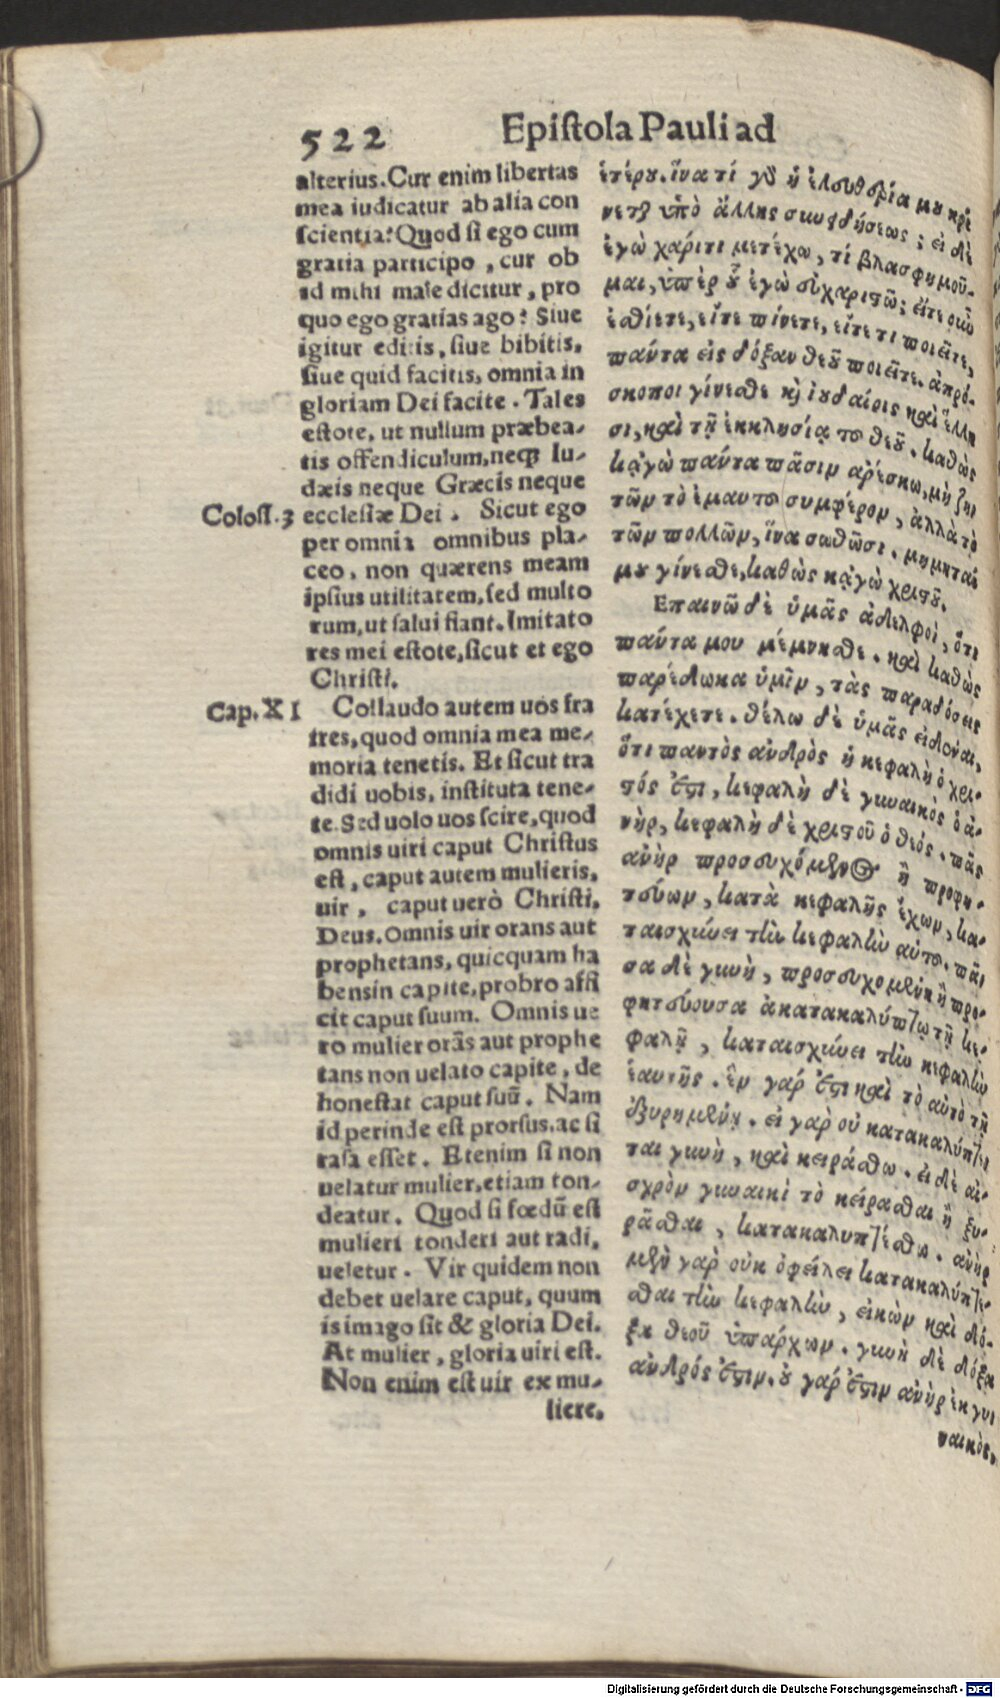 522 Epistola Pauli ad
alterius. Cur enim libertas
mea iudicatur ab alia con
scientia? Quod si ego cum
gratia participo, cur ob
id mihi maledicitur, pro
quo ego gratias ago? Siue
igitur editis, siue bibitis,
siue quid facitis, omnia in
gloriam Dei facite. Tales
estote, ut nullum præbea-
tis offendiculum, neqꝫ Iu-
dæis neque Græcis neque
Coloss. 3 ecclesiæ Dei. Sicut ego
per omnia omnibus pla-
ceo, non quærens meam
ipsius utilitatem, sed multo
rum, ut salui fiant. Imitato
res mei estote, sicut et ego
Christi.
Cap. XI Collaudo autem uos fra
tres, quod omnia mea me-
moria tenetis. Et sicut tra
didi uobis, instituta tene-
te. Sed uolo uos scire, quod
omnis uiri caput Christus
est, caput autem mulieris,
uir, caput uerò Christi,
Deus. Omnis uir orans aut
prophetans, quicquam ha
bens in capite, probro affi
cit caput suum. Omnis ue
ro mulier orãs aut prophe
tans non uelato capite, de
honestat caput suũ. Nam
id perinde est prorsus, ac si
rasa esset. Etenim si non
uelatur mulier, etiam ton-
deatur. Quod si fœdũ est
mulieri tonderi aut radi,
ueletur. Vir quidem non
debet uelare caput, quum
is imago sit & gloria Dei.
At mulier, gloria uiri est.
Non enim est uir ex mu-
liere.
ἑτέρου. ἵνα τί γὰρ ἡ ἐλευθερία μου κρί
νεται ὑπὸ ἄλλης συνειδήσεως; εἰ δὲ
ἐγὼ χάριτι μετέχω, τί βλασφημοῦ-
μαι, ὑπὲρ οὗ ἐγὼ εὐχαριστῶ; εἴτε οὖν
ἐσθίετε, εἴτε πίνετε, εἴτε τι ποιεῖτε,
πάντα εἰς δόξαν θεοῦ ποιεῖτε. ἀπρό-
σκοποι γίνεσθε καὶ ἰουδαίοις καὶ ἕλλη
σι, καὶ τῇ ἐκκλησίᾳ το θεοῦ. καθὼς
κᾀγὼ πάντα πᾶσιν ἀρέσκω, μὴ ζη
τῶν τὸ ἐμαυτο συμφέρον, ἀλλὰ τὸ
τῶν πολλῶν, ἵνα σωθῶσι. μιμηταί
μου γίνεσθε, καθὼς κᾀγὼ χριστοῦ.
Επαινῶ δὲ ὑμᾶς ἀδελφοὶ, ὅτι
πάντα μου μέμνησθε. καὶ καθὼς
παρέδωκα ὑμῖν, τὰς παραδόσεις
κατέχετε. θέλω δὲ ὑμᾶς εἰδέναι,
ὅτι παντὸς ἀνδρὸς ἡ κεφαλὴ ὁ χρι-
στός ἐστι, κεφαλὴ δὲ γυναικὸς ὁ ἀ-
νὴρ, κεφαλὴ δὲ χριστοῦ ὁ θεός. πᾶς
ἀνὴρ προσευχόμενος ἢ προφη-
τεύων, κατὰ κεφαλῆς ἔχων, κα-
ταισχύνει τὴν κεφαλὴν αὐτο. πᾶ
σα δὲ γυνὴ, προσευχομένη ἢ προ-
φητεύουσα ἀκατακαλύπτῳ τῇ κε-
φαλῇ, καταισχύνει τὴν κεφαλὴν
ἑαυτῆς. ἓν γάρ ἐστι καὶ τὸ αὐτὸ τῇ
ἐξυρημένῃ. εἰ γὰρ οὐ κατακαλύπτε
ται γυνὴ, καὶ κειράσθω. εἰ δὲ αἰ-
σχρὸν γυναικὶ τὸ κείρασθαι ἢ ξυ-
ρᾶσθαι, κατακαλυπτέσθω. ἀνὴρ
μὲν γὰρ οὐκ ὀφείλει κατακαλύπτε-
σθαι τὴν κεφαλὴν, εἰκὼν καὶ δό-
ξα θεοῦ ὑπάρχων. γυνὴ δὲ δόξα
ἀνδρός ἐστιν. οὐ γάρ ἐστιν ἀνὴρ ἐκ γυ
ναικὸς,
Digitalisierung gefördert durch die Deutsche Forschungsgemeinschaft - DFG